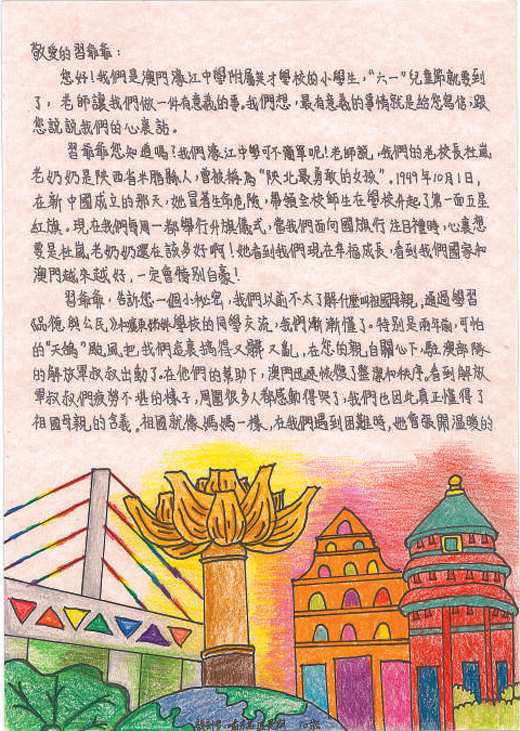 敬愛的習爺爺：
您好！我們是澳門濠江中學附屬英才學校的小學生，“六一”兒童節就要到
了，老師讓我們做一件有意義的事。我們想，最有意義的事情就是給您寫信，跟
您說說我們的心裏話。
習爺爺您知道嗎？我們濠江中學可不簡單呢！老師說，我們的老校長杜嵐
老奶奶是陝西省米脂縣人，曾被稱為“陝北最勇敢的女孩”。1949年10月1日，
在新中國成立的那天，她冒著生命危險，帶領全校師生在學校升起了第一面五星
紅旗。現在我們每周一都舉行升旗儀式，當我們面向國旗行注目禮時，心裏想
要是杜嵐老奶奶還在該多好啊！她看到我們現在幸福成長，看到我們國家和
澳門越來越好，一定會特別自豪！
習爺爺，告訴您一個小秘密，我們以前不太了解什麼叫祖國母親，通過學習
《品德與公民》、和廣東姊妹學校的同學交流，我們漸漸懂了。特別是兩年前，可怕
的“天鴿”颱風把我們這裏搞得又髒又亂，在您的親自關心下，駐澳部隊
的解放軍叔叔出動了。在他們的幫助下，澳門迅速恢復了整潔和秩序。看到解放
軍叔叔們疲勞不堪的樣子，周圍很多人都感動得哭了；我們也因此真正懂得了
祖國母親的含義。祖國就像媽媽一樣，在我們遇到困難時，她會張開溫暖的